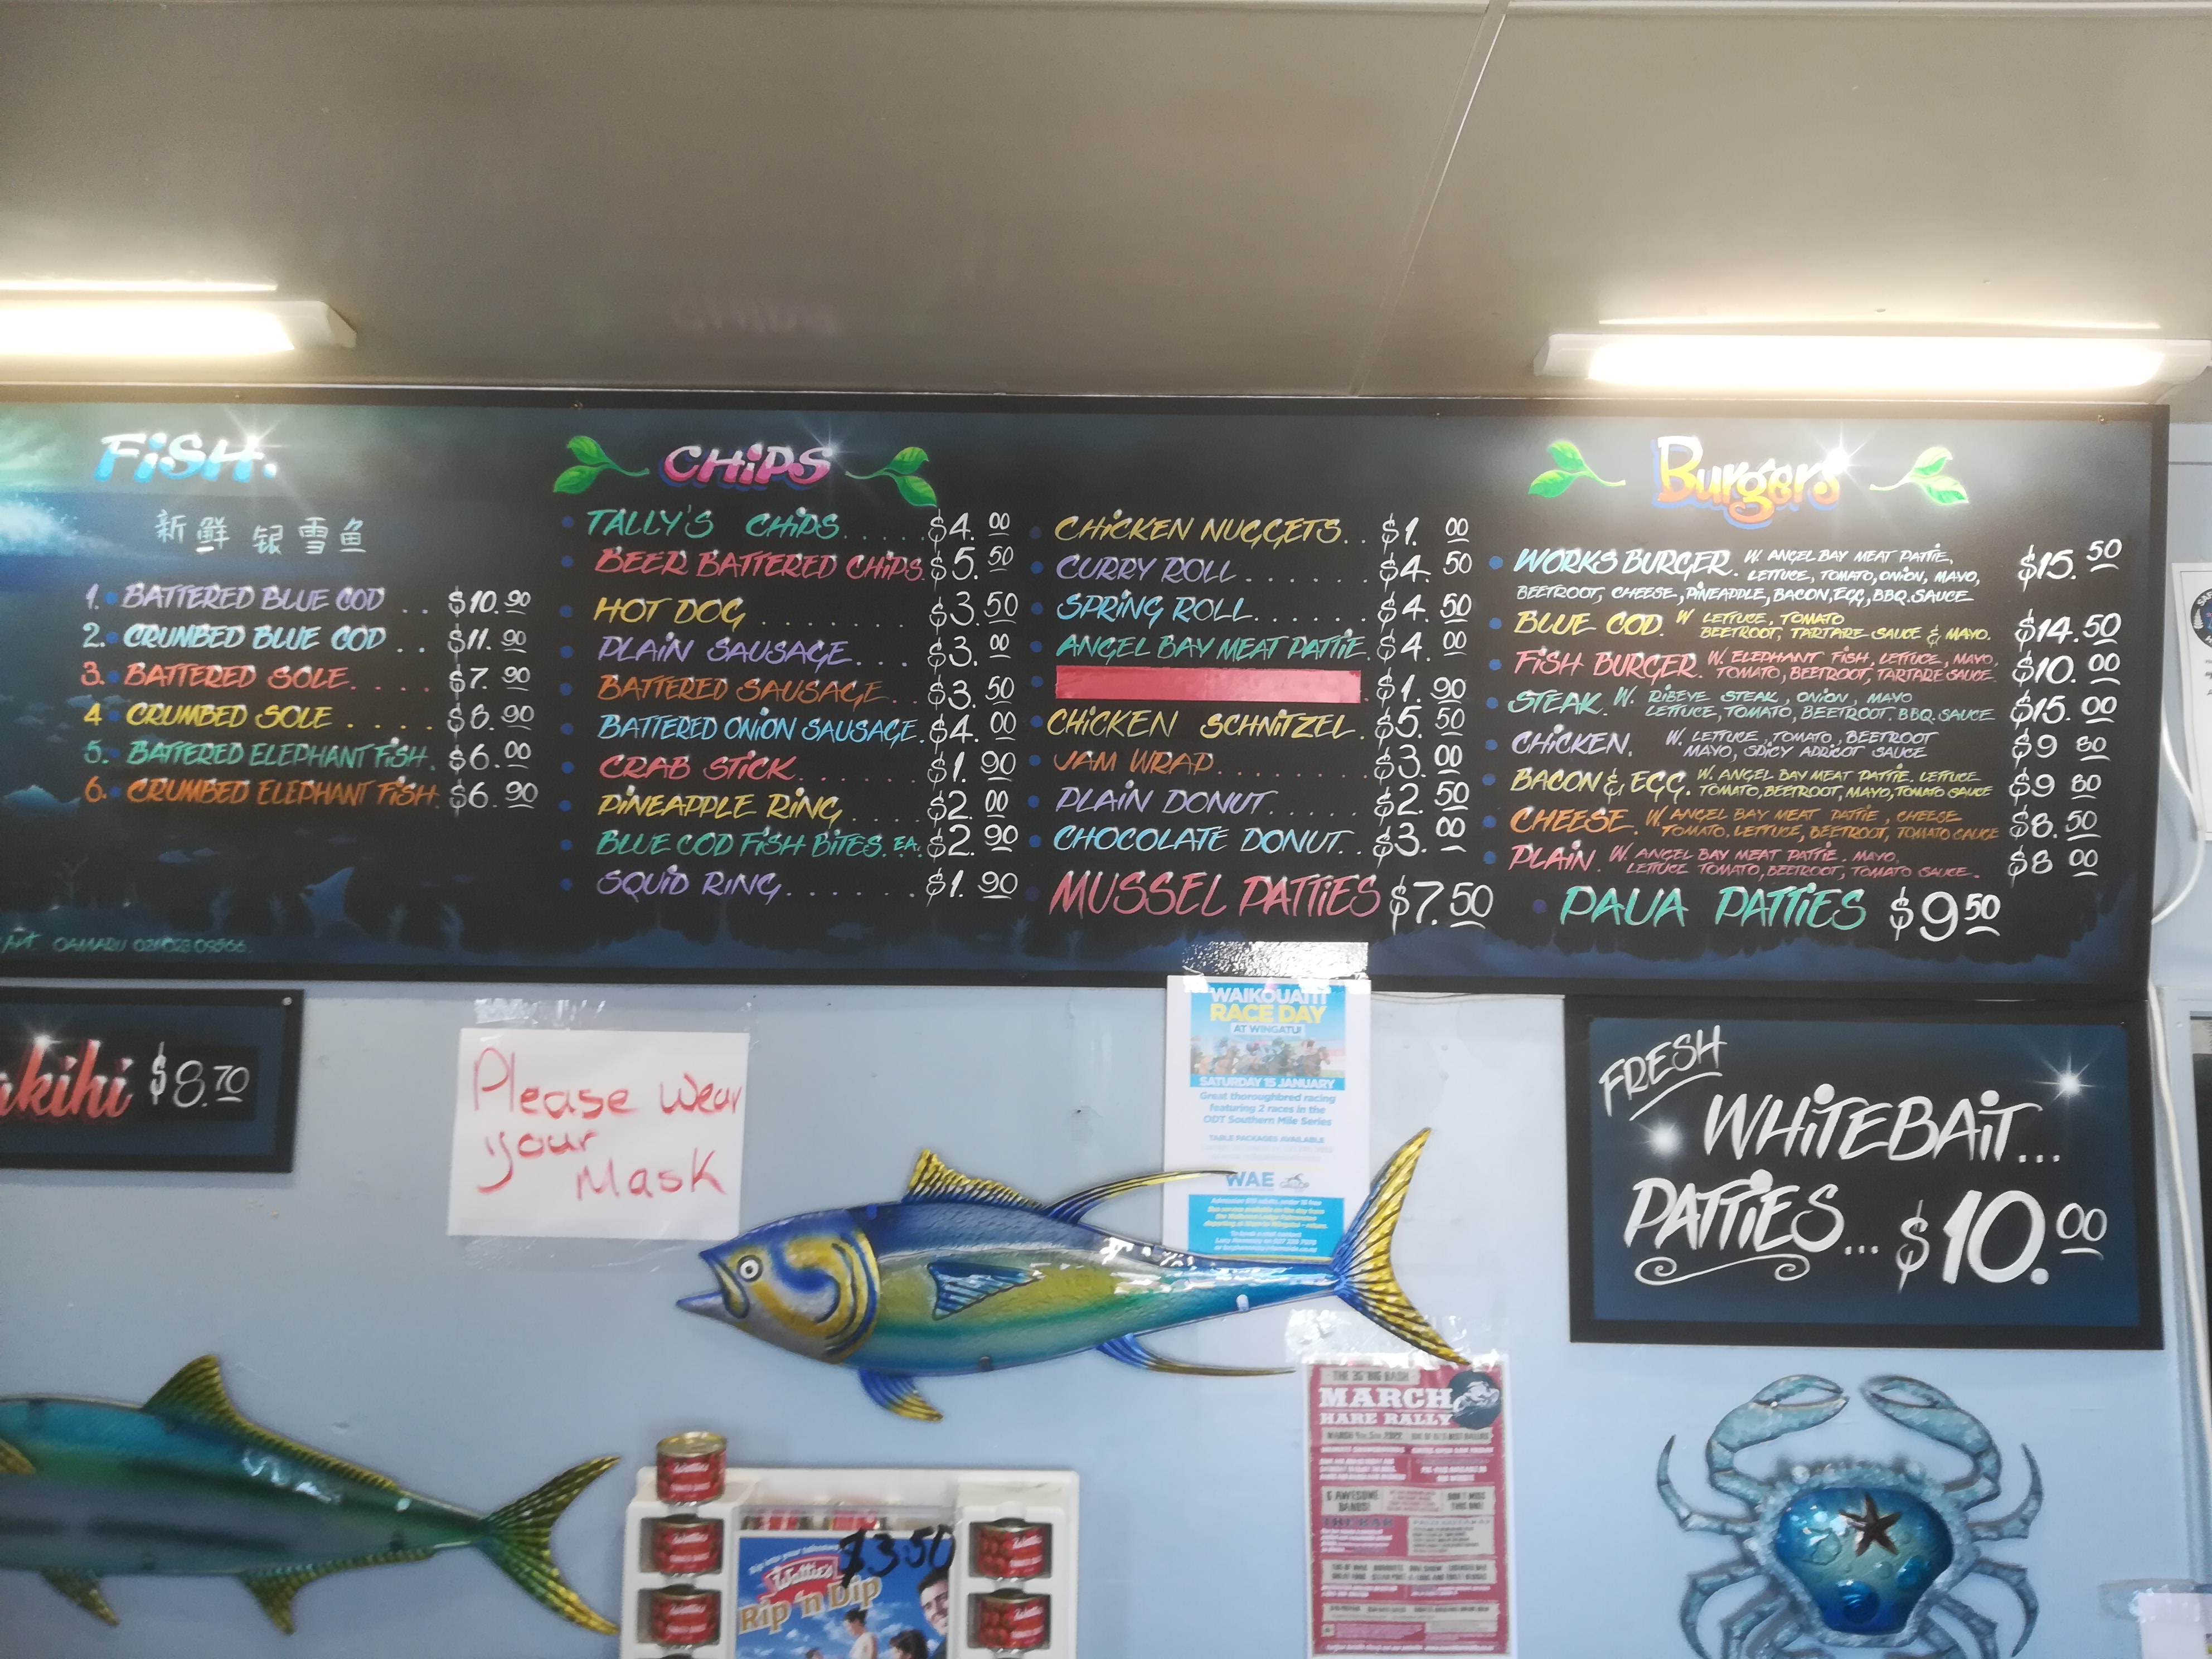 FISH.
新鲜 银雪鱼
1. BATTERED BLUE COD .. $10.90
2. CRUMBED BLUE COD .. $11.90
3. BATTERED SOLE.... $7.90
4 CRUMBED SOLE .... $8.90
5. BATTERED ELEPHANT FISH. $6.00
6. CRUMBED ELEPHANT FISH. $6.90
OAMARU
CHIPS
TALLY'S CHIPS..... $4.00
BEER BATTERED CHIPS. $5.50
HOT DOG ........ $3.50
PLAIN SAUSAGE... $3.00
BATTERED SAUSAGE.. $3.50
BATTERED ONION SAUSAGE. $4.00
CRAB STICK....... $1.90
PINEAPPLE RING .... $2.00
BLUE COD FISH BITES. EA. $2.90
SQUID RING....... $1.90
CHICKEN NUGGETS.. $1.00
CURRY ROLL....... $4.50
SPRING ROLL....... $4.50
ANGEL BAY MEAT PATTIE. $4.00
$1.90
CHICKEN SCHNITZEL. $5.50
JAM WRAP........ $3.00
PLAIN DONUT...... $2.50
CHOCOLATE DONUT.. $3.00
MUSSEL PATTIES $7.50
Burgers
WORKS BURGER. W. ANGEL BAY MEAT PATTIE, $15.50
LETTUCE, TOMATO, ONION, MAYO,
BEETROOT, CHEESE, PINEAPPLE, BACON, EGG, BBQ. SAUCE
BLUE COD. W LETTUCE, TOMATO $14.50
BEETROOT, TARTARE SAUCE & MAYO.
FISH BURGER. W. ELEPHANT FISH, LETTUCE, MAYO, $10.00
TOMATO, BEETROOT, TARTARE SAUCE.
STEAK. W. RIBEYE STEAK, ONION, MAYO $15.00
LETTUCE, TOMATO, BEETROOT. BBQ. SAUCE
CHICKEN. W. LETTUCE, TOMATO, BEETROOT $9 80
MAYO, SPICY APRICOT SAUCE
BACON & EGG. W. ANGEL BAY MEAT PATTIE. LETTUCE $9 80
TOMATO, BEETROOT, MAYO, TOMATO SAUCE
CHEESE. W. ANGEL BAY MEAT PATTIE, CHEESE $8.50
TOMATO, LETTUCE, BEETROOT, TOMATO SAUCE
PLAIN. W. ANGEL BAY MEAT PATTIE. MAYO, $8 00
LETTUCE TOMATO, BEETROOT, TOMATO SAUCE.
PAUA PATTIES $9 50
$8.70
Please wear
your
Mask
WAIKOUAITI
RACE DAY
AT WINGATUI
SATURDAY 15 JANUARY
Great thoroughbred racing
featuring 2 races in the
ODT Southern Mile Series
TABLE PACKAGES AVAILABLE
WAE
FRESH
WHITEBAIT...
PATTIES... $10.00
MARCH
HARE RALLY
6 AWESOME
BANDS!
Wattie's
Rip 'n Dip
3.50